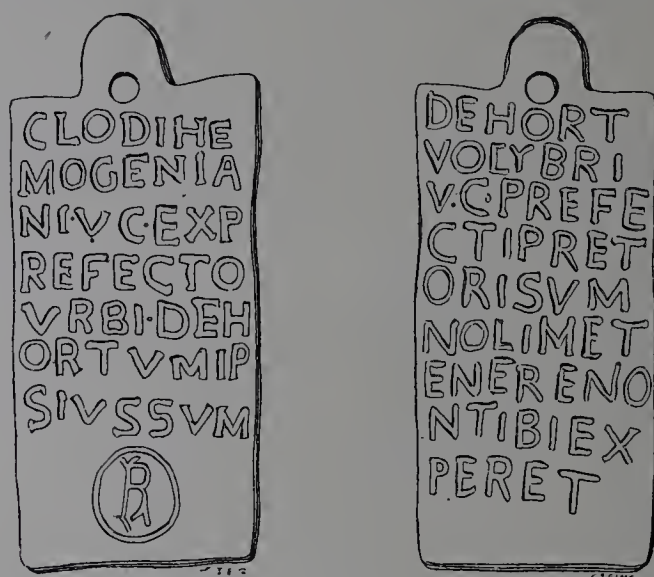 CLODIHE
MOGENIA
NIVC·EXP
REFECTO
VRBI·DEH
ORTVMIP
SIVSSVM
DEHORT
VOLYBRI
V·C·PREFE
CTIPRET
ORISVM
NOLIMET
ENERENO
NTIBIEX
PERET